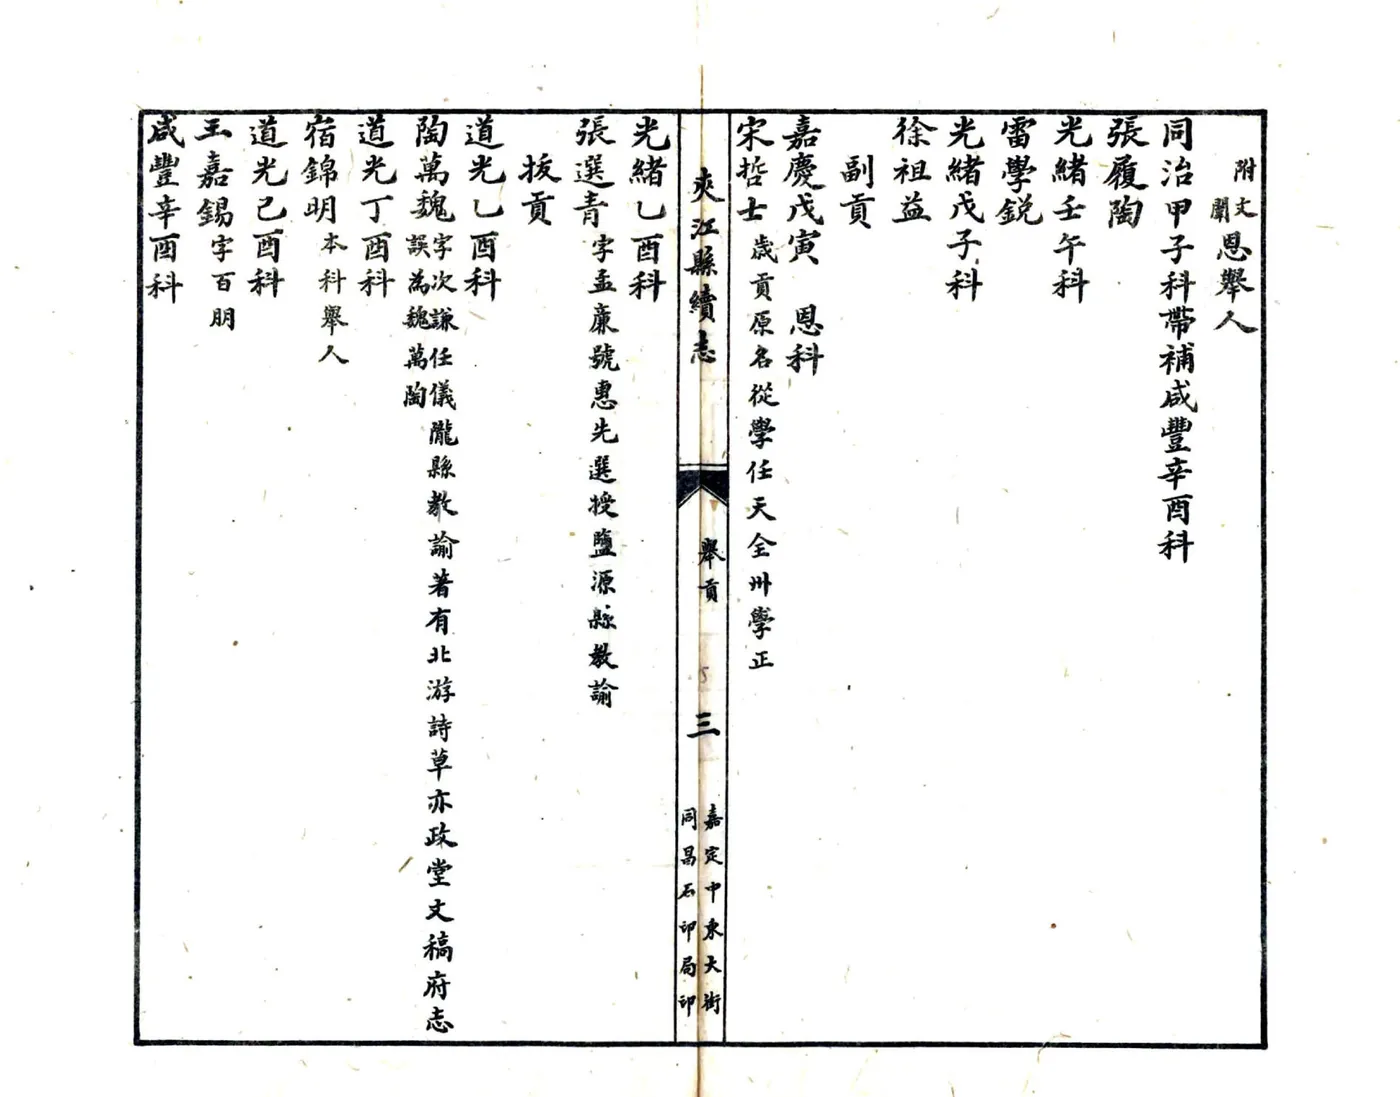 附文闈恩舉人
同治甲子科帶補咸豐辛酉科
張履陶
光緒壬午科
雷學鋭
光緒戊子科
徐祖益
副貢
嘉慶戊寅　恩科
宋哲士歲貢原名從學任天全州學正
夾江縣續志
舉貢
三
嘉定中東大街
同昌石印局印
光緒乙酉科
張選青字孟廉號惠先選授鹽源縣教諭
拔貢
道光乙酉科
陶萬魏字次謙任儀隴縣教諭著有北游詩草亦政堂文稿府志
誤為魏萬陶
道光丁酉科
宿錦明本科舉人
道光己酉科
王嘉錫字百朋
咸豐辛酉科